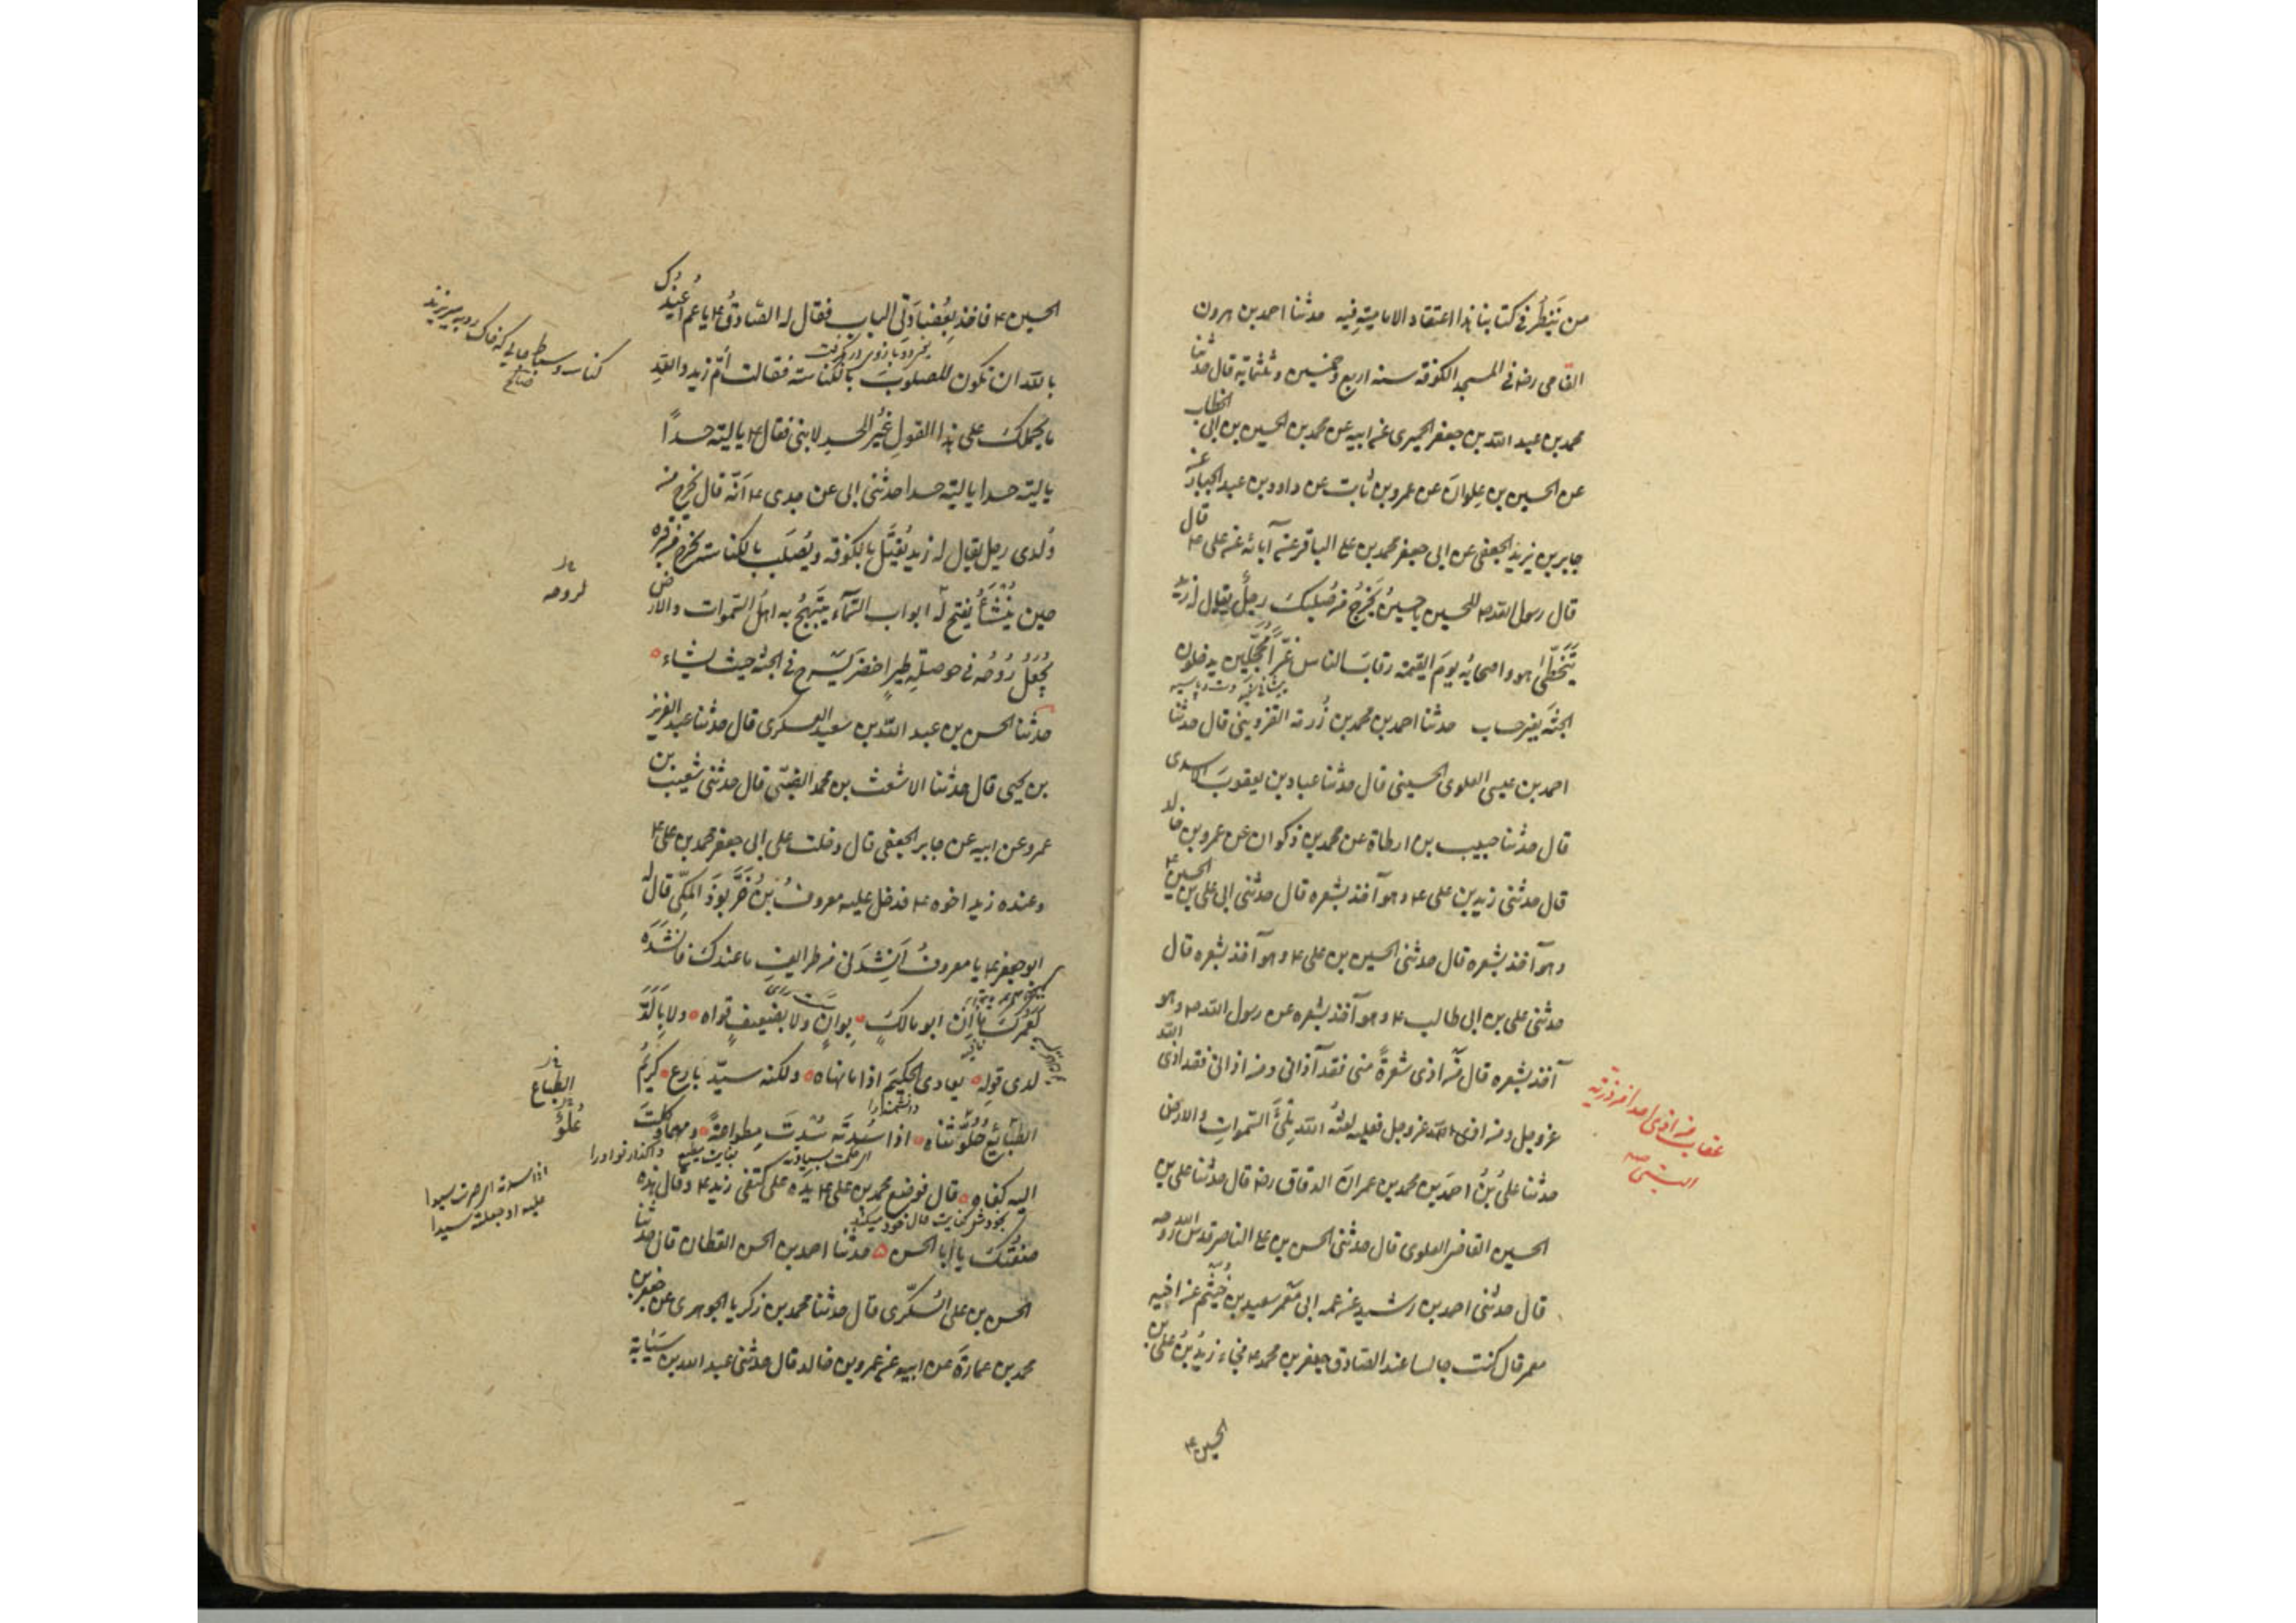 من ينظر في كتابنا هذا اعتقاد الامامية فيه حدثنا احمد بن هرون
القامى رضه في المسجد الكوفة سنه اربع وخمسين وثلثماية قال حدثنا
محمد بن عبد الله بن جعفر الحميرى عن ابيه عن محمد بن الحسين بن ابى الخطاب
عن الحسين بن علوان عن عمرو بن ثابت عن داود بن عبد الجبار عن
جابر بن يزيد الجعفى عن ابى جعفر محمد بن على الباقر عن آبائه عن على ع قال
قال رسول الله ص للحسين يا حسين يَخْرُجُ من صُلبك رجلٌ يقال له زيدٌ
يَتَخَطّى هو واصحابه يومَ القيمة رقابَ الناس غُرّاً مُحَجَّلين يدخلون
الجنّةَ بغير حساب حدثنا احمد بن محمد بن زُرمة القزوينى قال حدثنا
احمد بن عيسى العلوى الحسينى قال حدثنا عباد بن يعقوبَ الاسدى
قال حدثنا حبيب بن ارطاة عن محمد بن ذكوان عن عمرو بن خالد
قال حدثنى زيد بن على ع وهو آخذ بشعره قال حدثنى ابى على بن الحسين ع
وهو آخذ بشعره قال حدثنى الحسين بن على ع وهو آخذ بشعره قال
حدثنى على بن ابى طالب ع وهو آخذ بشعره عن رسول الله ص وهو
آخذ بشعره قال من آذى شعرةً منى فقد آذانى ومن اذانى فقد اذى الله
عز وجل ومن اذى الله عز وجل فعليه لعنةُ الله مِلْئَ السّموات والارض
عقاب من اذى احدا من ذرية
النبى ص
حدثنا علىُّ بنُ احمدَ بن محمد بن عمرانَ الدقاق رضه قال حدثنا على بن
الحسين القاضى العلوى قال حدثنى الحسن بن على الناصر قدس الله روحه
قال حدثنى احمد بن رشيد عن عمه ابى مَعْمَر سعيد بن خُيثَم عن اخيه
معمر قال كنت جالسا عند الصّادق جعفر بن محمد ع فجاء زيدُ بنُ على بن
الحسين ع
الحسين ع فاخذ بِعُضادَتَى الباب فقال له الصّادقُ ع يا عم اُعيذك
بالله ان تكون المصلوبَ بالكناسة فقالت اُمّ زيد واللهِ
ما يحملك على هذا القولِ غَيْرُ الحسدِ لابنى فقال ع يا ليته حسداً
يا ليته حسدا يا ليته حسدا حدثنى ابى عن جدى ع اَنّه قال يخرج من
وُلدى رجل يقال له زيد يُقتَل بالكوفة ويُصلَب بالكناسة يخرج من قبره
حين يُنْشَأُ يُفتح له ابواب السّمآء يَبتَهِجُ به اهلُ السّموات والارض
لروحه
يُجعَلُ رُوحُه في حوصلةِ طيرٍ اخضرَ يَسْرح في الجنّة حيث يشاء
حدثنا الحسن بن عبد الله بن سعيد العسكرى قال حدثنا عبد العزيز
بن يحيى قال حدثنا الاشعث بن محمد الضبّى قال حدثنى شعيب بن
عمرو عن ابيه عن جابر الجعفى قال دخلت على ابى جعفر محمد بن على ع
وعنده زيد اخوه ع فدخل عليه معروفُ بنُ خَرَّبوذَ المكّى قال له
ابو جعفر ع يا معروفُ اَنشِدنى من طرايفِ ما عندك فانشَدَه
لَعَمرُكَ ما اِن ابو مالكٍ بوانٍ ولا بضعيفٍ قواه ولا باَلَدَّ
لدى قوله يعادى الحكيمَ اذا ما نهاه ولكنه سيّد بارع كريمُ
الطباع
الطبآئعِ حُلوٌ نَثاه اذا سُدتَه سُدتَ مِطواعةً ومهما وكلتَ
اليه كفاه قال فوضع محمد بن على ع يده على كتفى زيد ع وقال هذه
صفتُك يا ابا الحسن حدثنا احمد بن الحسن القطان قال حدثنا
الحسن بن على السُكّرى قال حدثنا محمد بن زكريا الجوهرى عن جعفر بن
محمد بن عمارةَ عن ابيه عن عمرو بن خالد قال حدثنى عبد الله بن سَيّابة